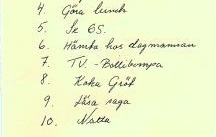 4. Göra lunch
5. Se 65.
6. Hämta hos dagmamman
7. TV. - Bollibompa
8. Koka Gröt
9. Läsa saga
10. Natta